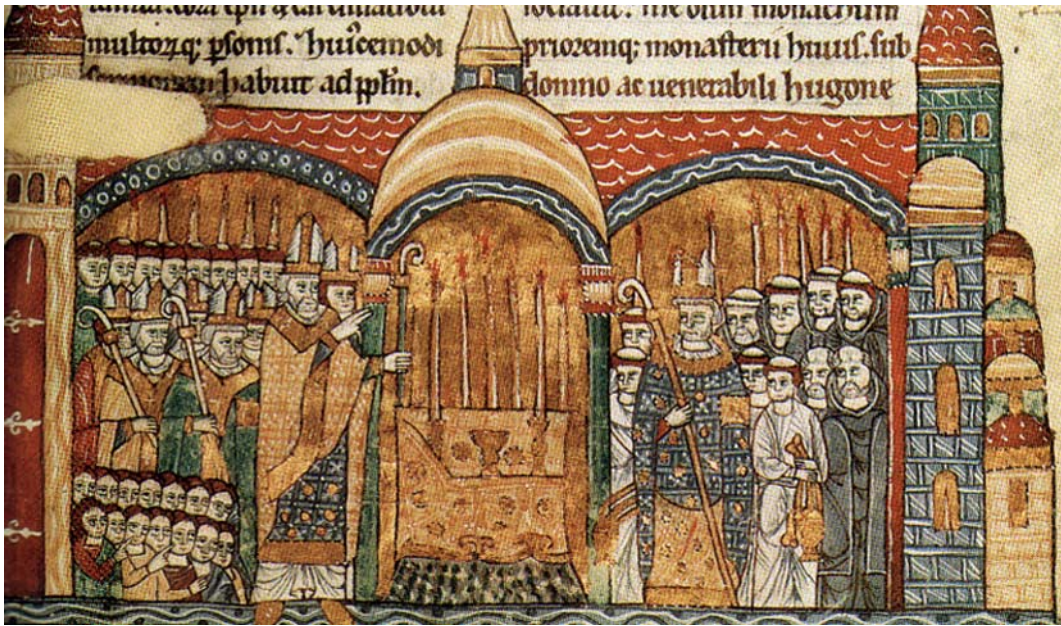 multoꝝq; ꝑsonis. hui'cemodi
sermonem habuit ad pplm̄.
me olim monachum
prioremq; monasterii huius. sub
domno ac uenerabili hugone